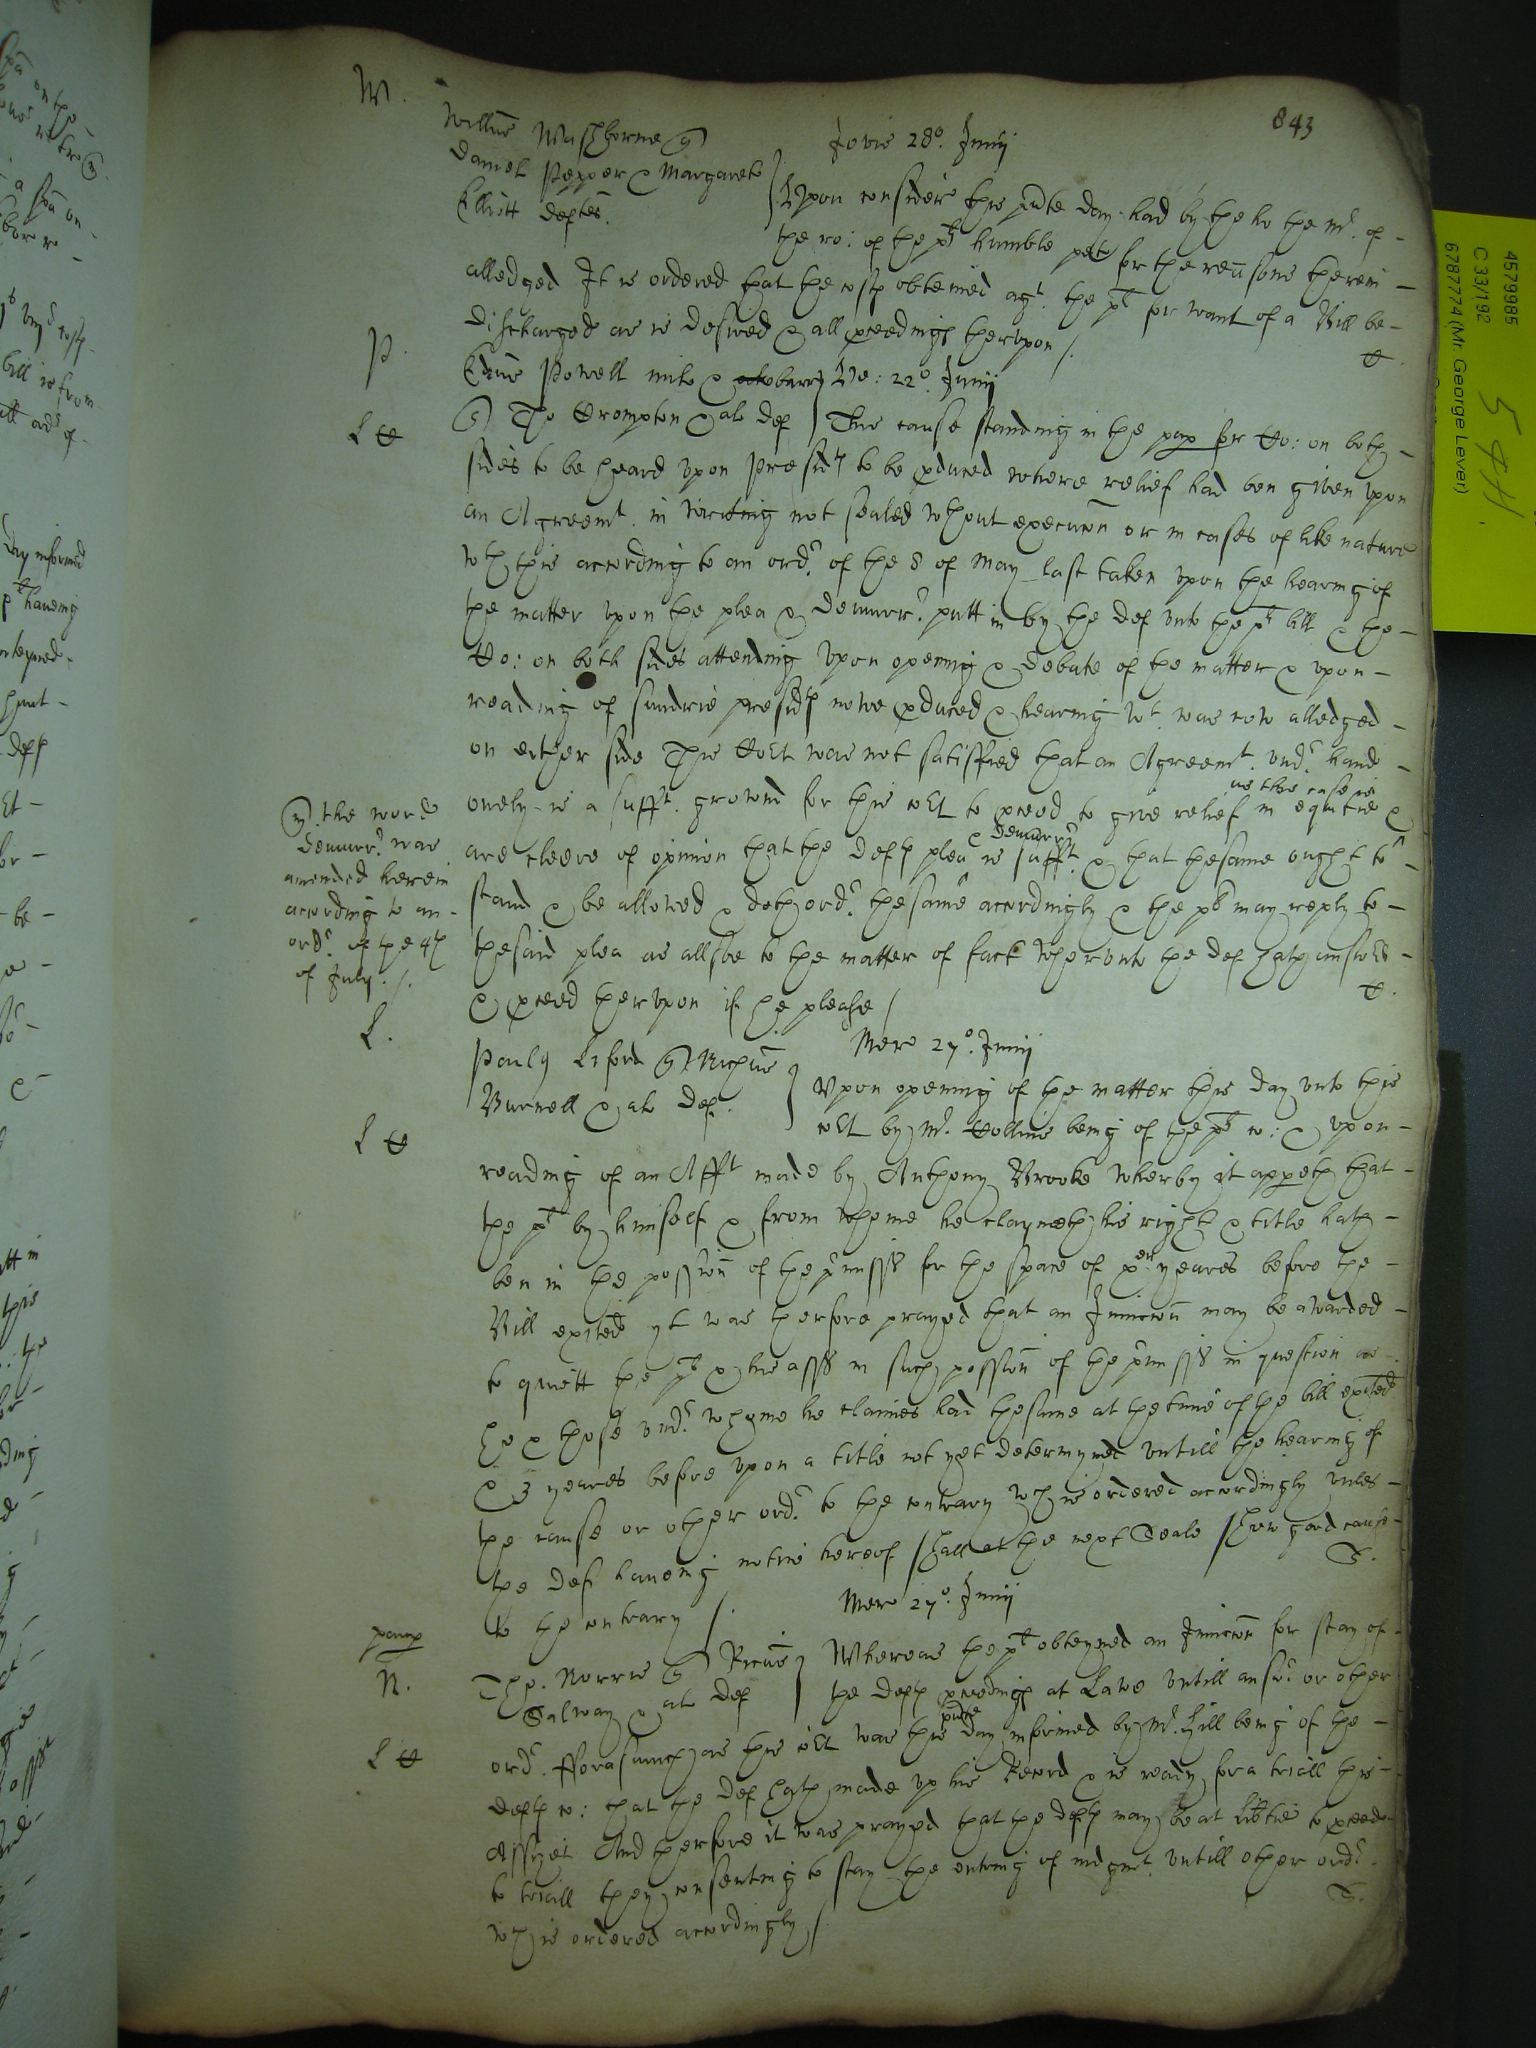 843
W.
Willus Washborne q
Daniel Pepper & Margarete
Elliott deftes.
Jovis 28o. Junij
Upon consider this pnte day had by the ho the Mr. of
the ro: of the pts humble peto for the reasons therein
alledged It is ordered that the costs obteined agt. the pt for want of a Bill be
discharged as is desired & all proceedings therupon /.
P.
Edrus Powell mil &
Ve: 22o. Junij
q Tho Crompton & al def
L C
This cause standing in the pap for Co: on both
sides to be heard upon presidts to be produced where relief had ben given upon
an Agreemt. in writing not sealed wthout execucon or in cases of like nature
wth this according to an ordr. of the 8 of May last taken upon the hearing of
the matter upon the plea & demurr. putt in by the def unto the pts bill & the
Co: on both sides attending upon opening & debate of the matter & upon
reading of sundrie presidts nowe produced & hearing wt. was now alledged
on either side This Cort was not satisfied that an Agreemt. undr. hand
as this case is
onely is a sufft. ground for this cort to proceed to give relief in equitie &
& demurr
are cleere of opinion that the defts plea is sufft. & that thesame ought to
stand & be allowed & doth ordr. thesame accordingly & the pt may reply to
thesaid plea as allsoe to the matter of fact wherunto the def hath answered
& proceed therupon if he please /
q. the word
demurr. was
amended herein
according to an
ordr. of the 4th
of July. /.
L.
Paulus Liford q Richus
Burnell & al def.
Merc 27o. Junij
L C
Upon opening of the matter this day unto this
cort by Mr. Collins being of the pts co: & upon
reading of an Afft made by Anthony Brooke wherby it appeth that
the pt by himself & from whome he claymeth his right & title hath
ben in the possion of the pmisses for the space of yeares before the
Bill exited yt was therfore prayed that an Iniuncon may be awarded
to quiett the pt & his asss in such possion of the pmisses in question as
he & those undr. whome he claimes had thesame at the time of the bill exited
& 3 yeares before upon a title not yet determyned untill the hearing of
the cause or other ordr. to the contrary wch is ordered accordingly unles
the def haveing notice hereof shall at the next Seale shew good cause
to the contrary /.
Merc 27o. Junij
N.
Tho. Norris q Ricus
Salway & al def
L C
Whereas the pt obteyned an Iniuncon for stay of
the defts proceedings at Lawe untill answ. or other
pnte
ordr. fforasmuch as this cort was this day informed by Mr. Hill being of the
defts co: that the def hath made up his Record & is ready for a triall this
Assizes And therfore it was prayed that the defts may be at libtie to proceed
to triall they consenting to stay the entring of iudgmt. untill other ordr.
wch is ordered accordingly /.
4579985
C 33/192
6787774 (Mr. George Lever)